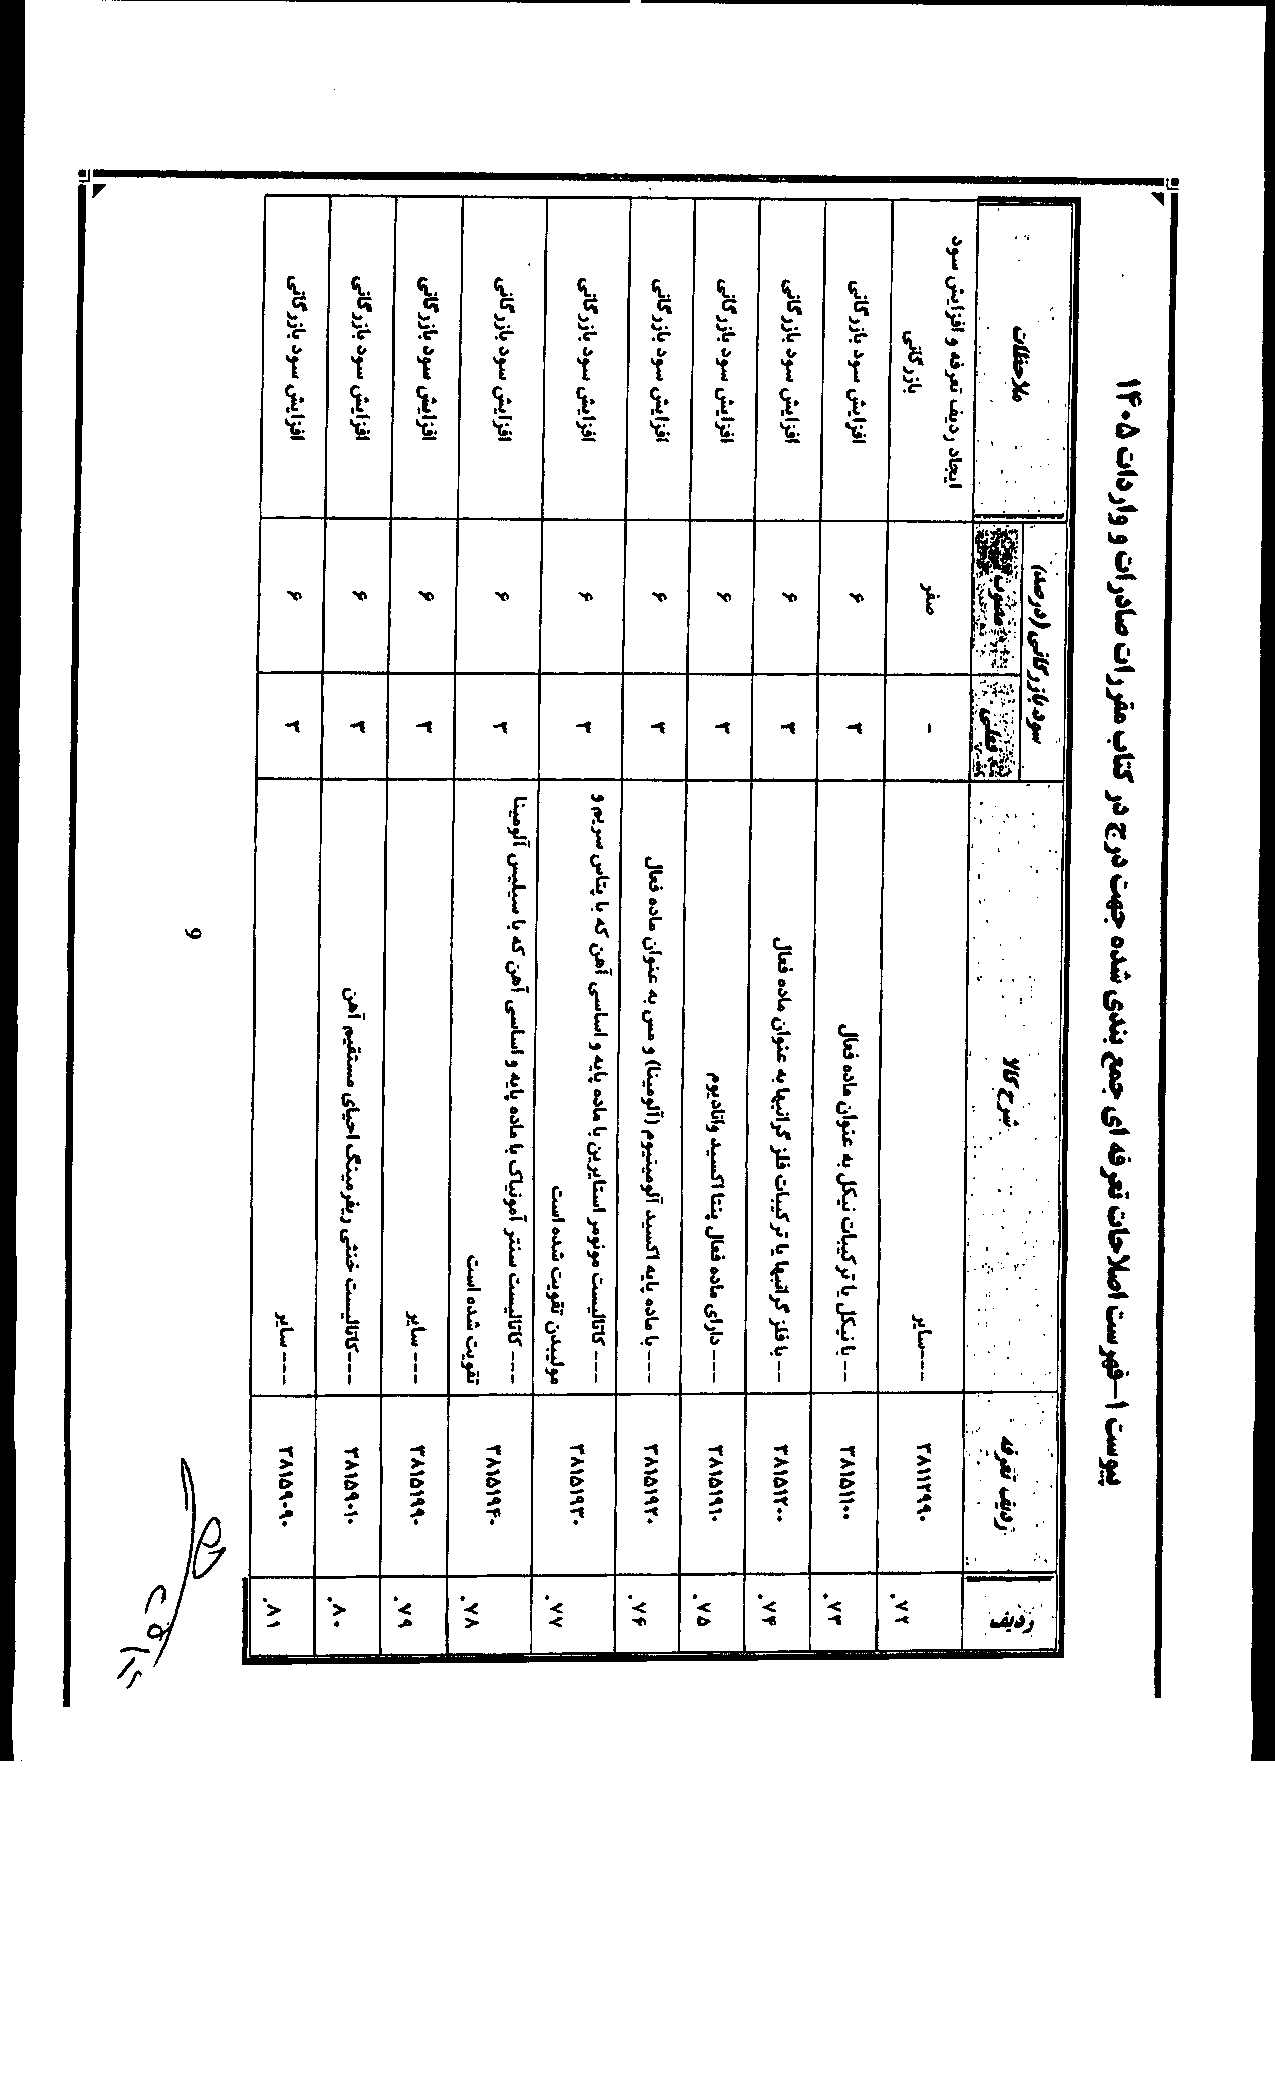 پیوست ۱-فهرست اصلاحات تعرفه ای جمع بندی شده جهت درج در کتاب مقررات صادرات و واردات ۱۴۰۵
ردیف ردیف تعرفه شرح کالا سود بازرگانی (درصد) ملاحظات
فعلی مصوب
۷۲. ۳۸۱۱۲۹۹۰ ---سایر - صفر ایجاد ردیف تعرفه و افزایش سود
بازرگانی
۷۳. ۳۸۱۵۱۱۰۰ -- با نیکل یا ترکیبات نیکل به عنوان ماده فعال ۳ ۶ افزایش سود بازرگانی
۷۴. ۳۸۱۵۱۲۰۰ -- با فلز گرانبها یا ترکیبات فلز گرانبها به عنوان ماده فعال ۳ ۶ افزایش سود بازرگانی
۷۵. ۳۸۱۵۱۹۱۰ --- دارای ماده فعال پنتا اکسید وانادیوم ۳ ۶ افزایش سود بازرگانی
۷۶. ۳۸۱۵۱۹۲۰ --- با ماده پایه اکسید آلومینیوم (آلومینا) و مس به عنوان ماده فعال ۳ ۶ افزایش سود بازرگانی
۷۷. ۳۸۱۵۱۹۳۰ --- کاتالیست مونومر استایرین با ماده پایه و اساسی آهن که با پتاس سریم و ۳ ۶ افزایش سود بازرگانی
مولیبدن تقویت شده است
۷۸. ۳۸۱۵۱۹۴۰ --- کاتالیست سنتز آمونیاک با ماده پایه و اساسی آهن که با سیلیس آلومینا ۳ ۶ افزایش سود بازرگانی
تقویت شده است
۷۹. ۳۸۱۵۱۹۹۰ --- سایر ۳ ۶ افزایش سود بازرگانی
۸۰. ۳۸۱۵۹۰۱۰ ---کاتالیست خنثی ریفرمینگ احیای مستقیم آهن ۳ ۶ افزایش سود بازرگانی
۸۱. ۳۸۱۵۹۰۹۰ --- سایر ۳ ۶ افزایش سود بازرگانی
۹